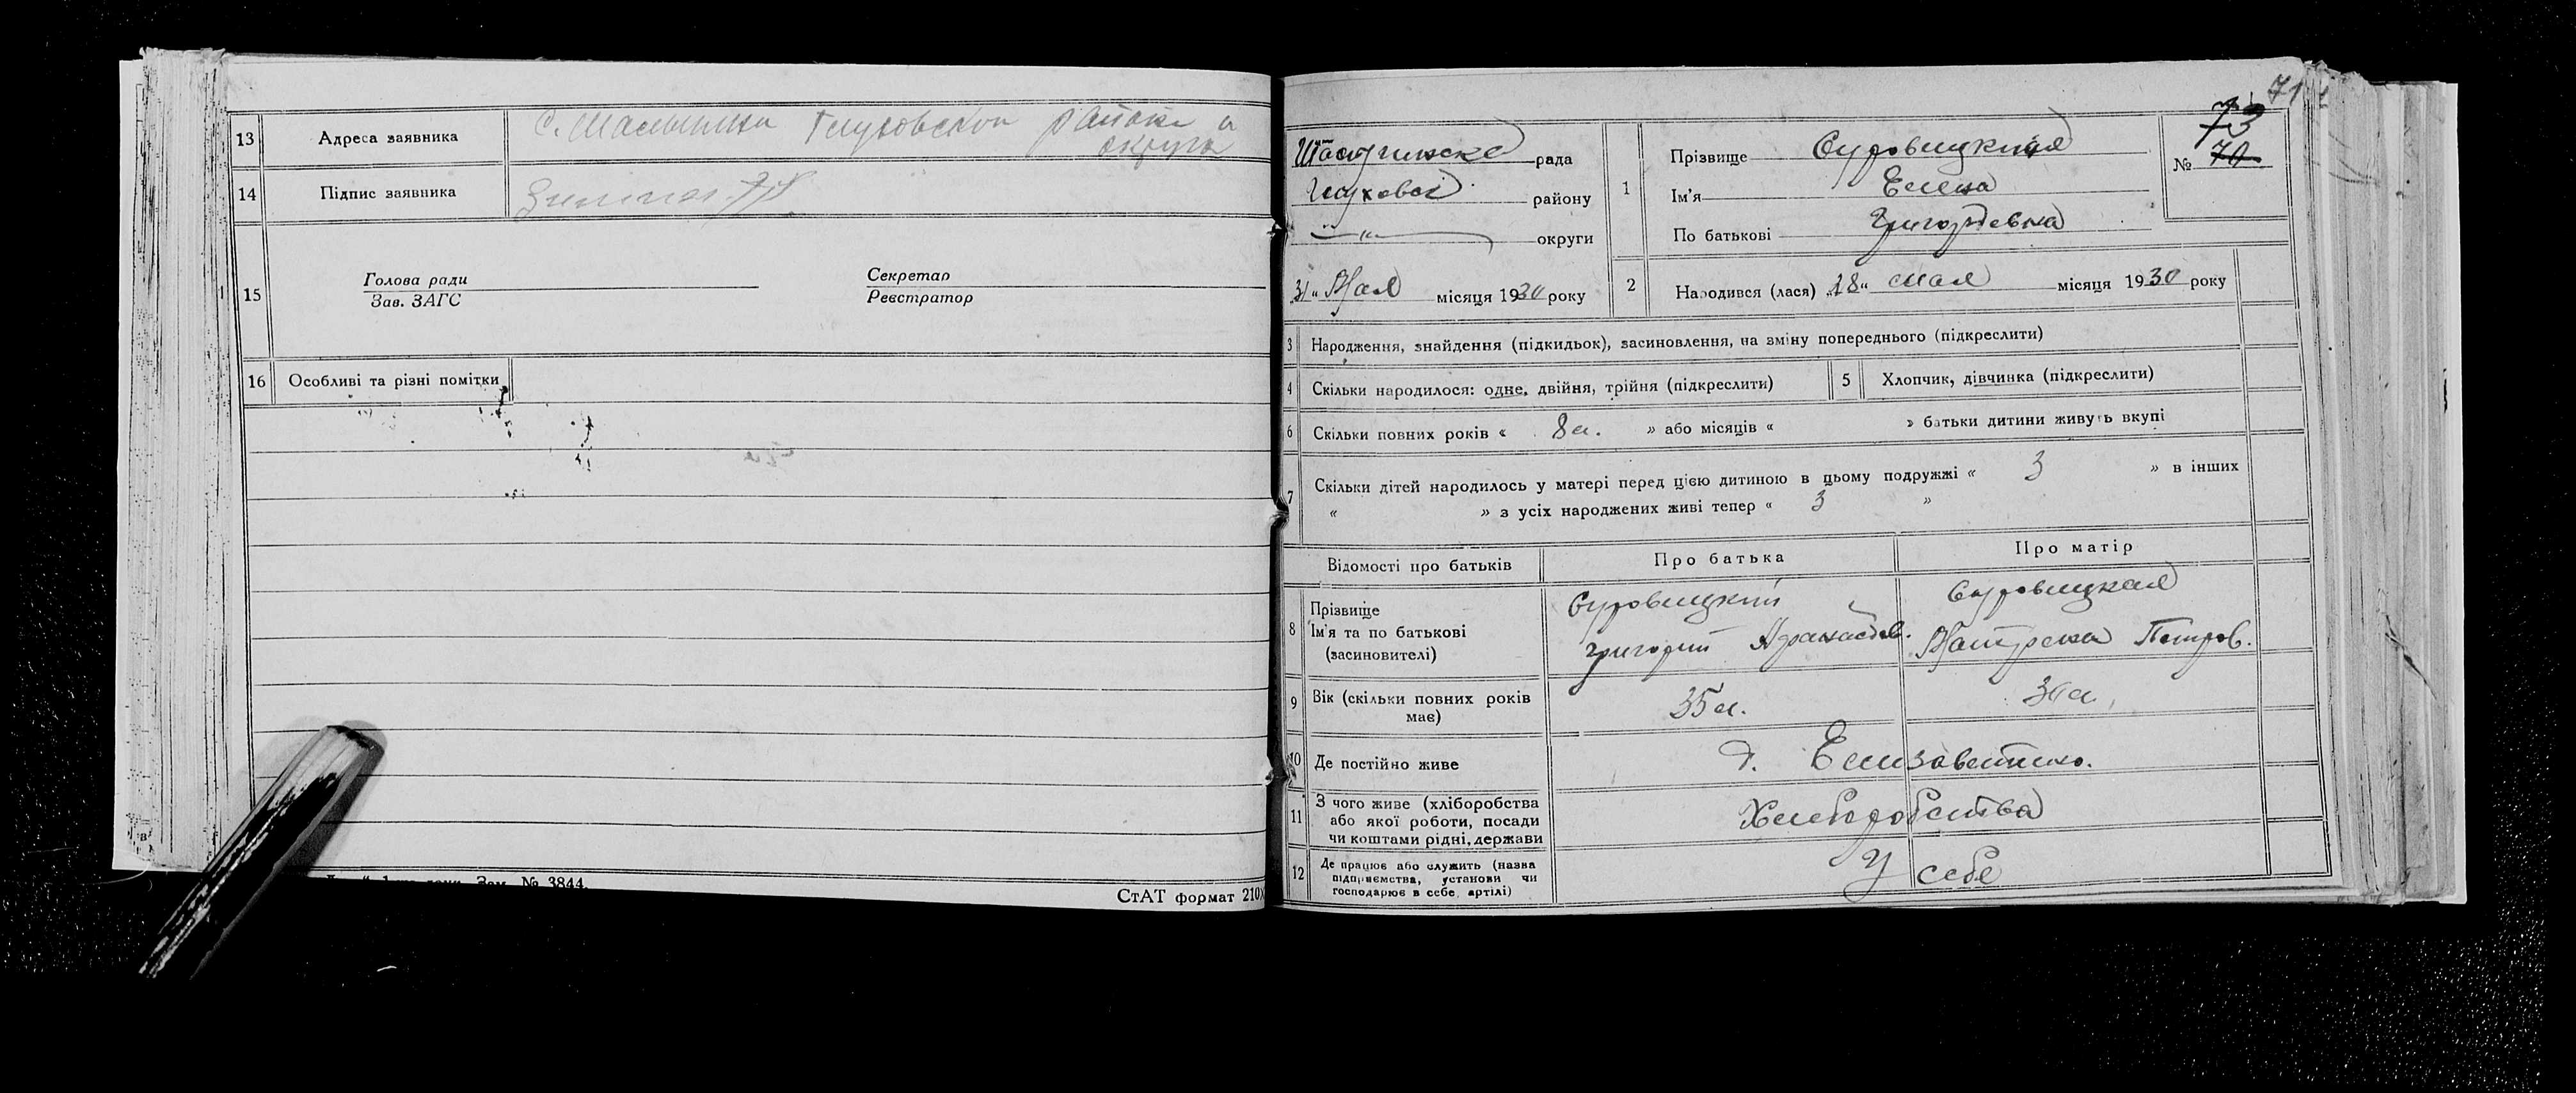 13 Адреса заявника С. района и
округа
14 Підпис заявника
15 Голова ради
Зав. ЗАГС
Секретар
Реєстратор
16 Особливі та різні помітки
Зам. № 3844.
СтАТ формат 210X
71
рада
району
— " — округи
31 " Мая місяця 1930 року
1 Прізвище Суровицкая
Ім'я Елена
По батькові Григорьевна
73
№ 70
2 Народився (лася) „18" мая місяця 1930 року
3 Народження, знайдення (підкидьок), засиновлення, на зміну попереднього (підкреслити)
4 Скільки народилося: одне, двійня, трійня (підкреслити)
5 Хлопчик, дівчинка (підкреслити)
6 Скільки повних років « 8 л. » або місяців « » батьки дитини живуть вкупі
7 Скільки дітей народилось у матері перед цією дитиною в цьому подружжі « 3 » в інших
« » з усіх народжених живі тепер « 3 »
Відомості про батьків Про батька Про матір
8 Прізвище
Ім'я та по батькові
(засновителі)
Суровицкий
Григорий Афанасьев.
Суровицкая
Матрена Петров.
9 Вік (скільки повних років
має)
35 л.
10 Де постійно живе д. Елизаветино.
11 З чого живе (хліборобства
або якої роботи, посади
чи коштами рідні, держави
Хлеборобства
12 Де працює або служить (назва
підприємства, установи чи
господарює в себе, артілі)
У себе